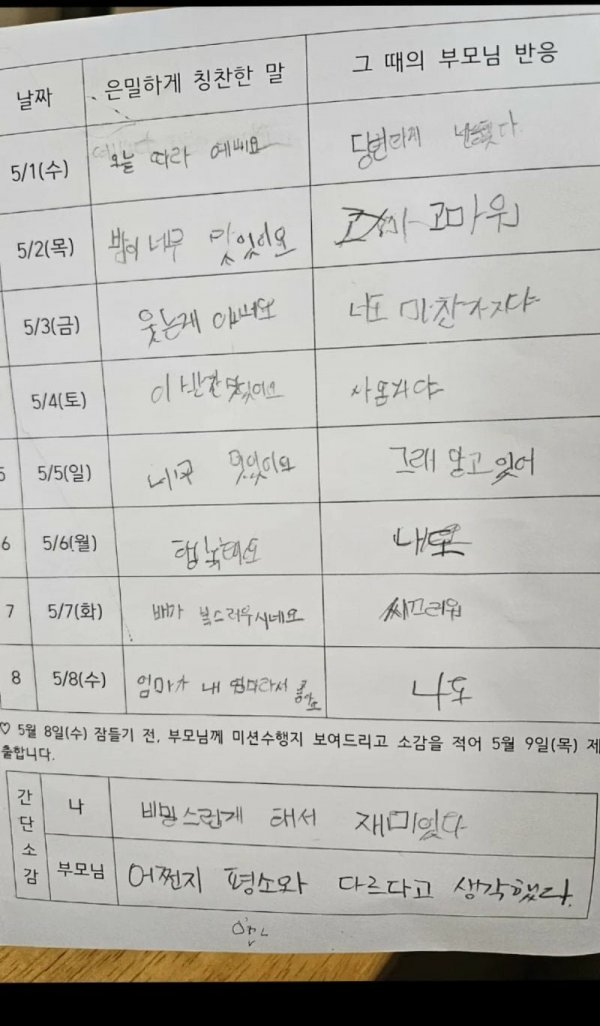 날짜 은밀하게 칭찬한 말 그 때의 부모님 반응
5/1(수) 오늘 따라 예뻐요 당번하게
5/2(목) 밥이 너무 맛있어요 고마워
5/3(금) 웃는게 너도 마찬가지야
5/4(토) 이 맛있어요
5/5(일) 맛있어요 그래 알고 있어
6 5/6(월) 내도
7 5/7(화) 배가 복스러우시네요 씨끄러워
8 5/8(수) 엄마가 내 엄마라서 좋아요 나도
♡ 5월 8일(수) 잠들기 전, 부모님께 미션수행지 보여드리고 소감을 적어 5월 9일(목) 제
출합니다.
간단소감
나 비밀스럽게 해서 재미있다
부모님 어쩐지 평소와 다르다고 생각했다.